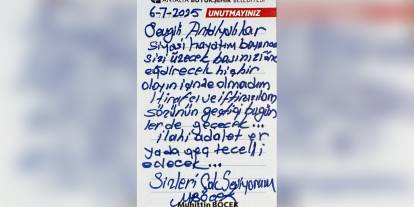 ANTALYA BÜYÜKŞEHİR BELEDİYESİ
6-7-2025 UNUTMAYINIZ
Sevgili Antalyalılar
siyasi hayatım boyunca
sizi üzecek başınızı öne
eğdirecek hiçbir
olayın içinde olmadım
İtirafçı ve iftiracıların
sözünün geçtiği bugün
lerde geçecek...
ilahi adalet er
yada geç tecelli
edecek...
Sizleri Çok Seviyorum
Muhittin BÖCEK